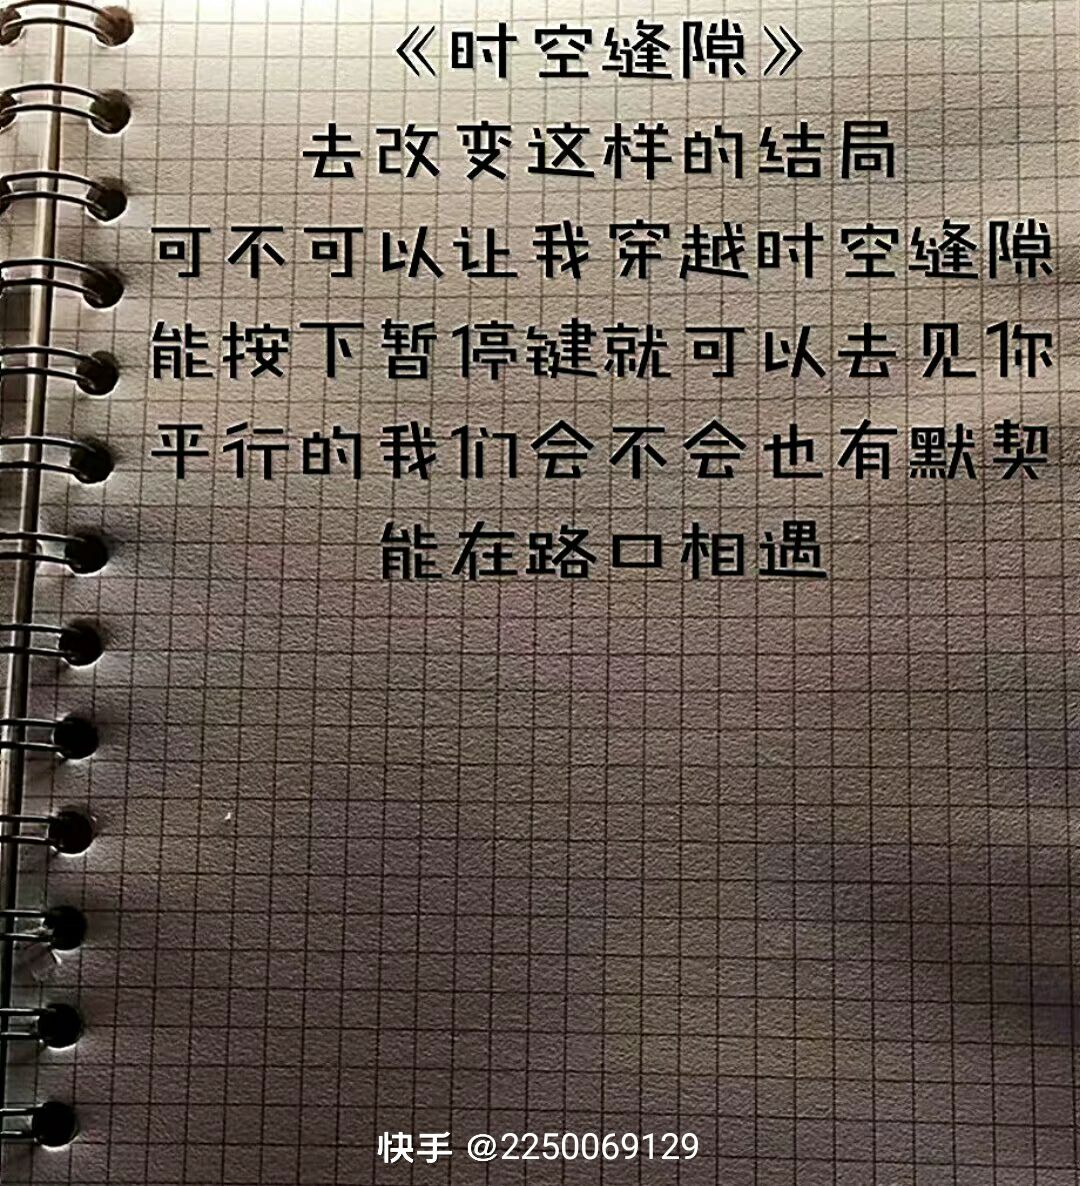 《时空缝隙》
去改变这样的结局
可不可以让我穿越时空缝隙
能按下暂停键就可以去见你
平行的我们会不会也有默契
能在路口相遇
快手 @2250069129